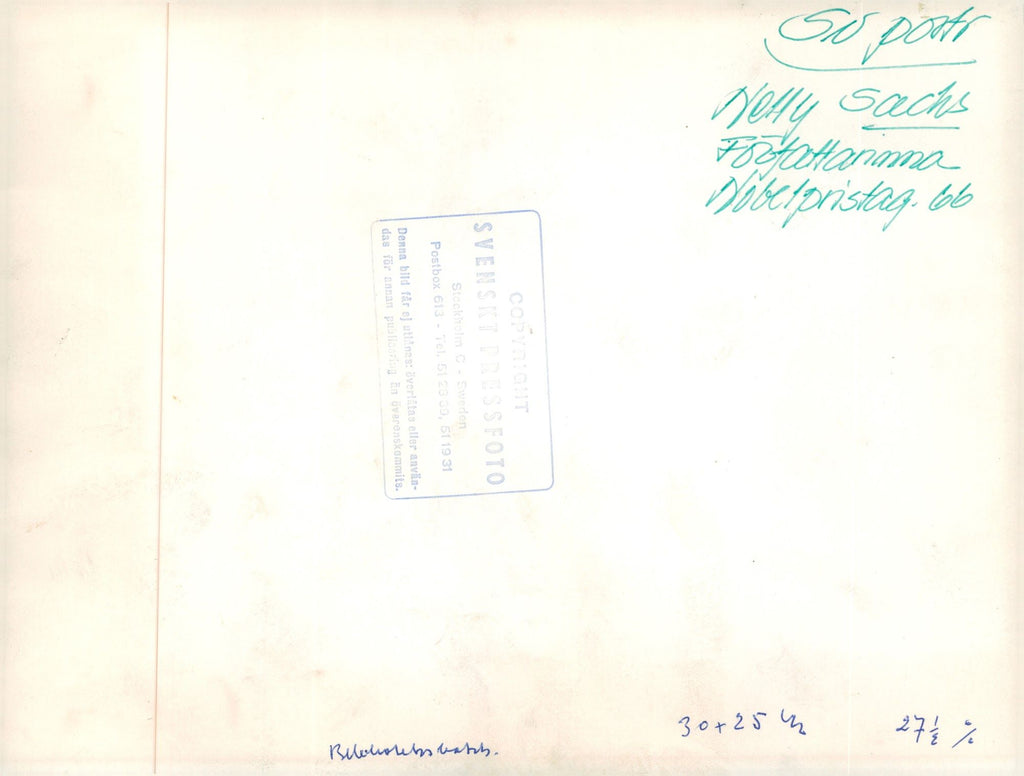 SV portr
Nelly Sachs
Författarinna
Nobelpristag. 66
COPYRIGHT
SVENSKT PRESSFOTO
Stockholm C - Sweden
Postbox 613 - Tel. 51 28 39, 51 19 31
Denna bild får ej utlånas, överlåtas eller använ-
das för annan publicering än överenskommits.
30+25
27 1/2 %